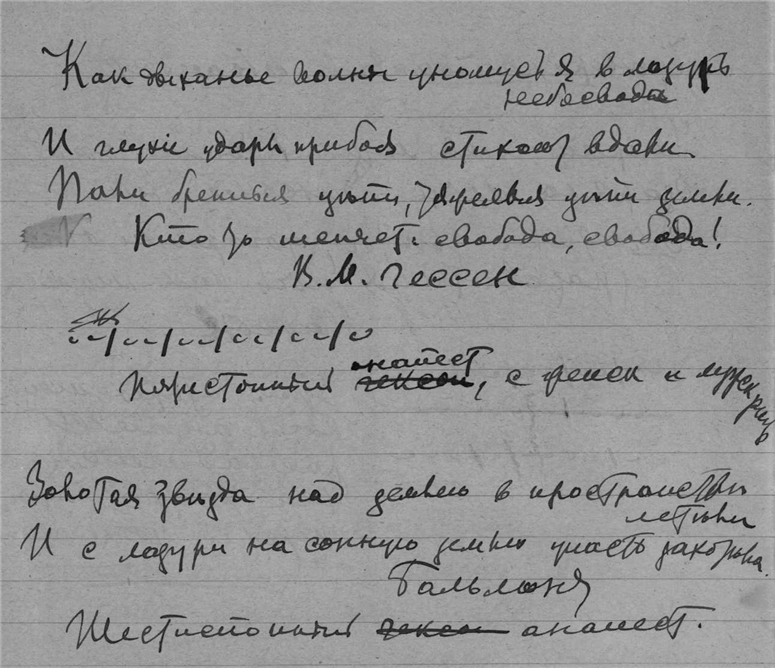 Как дыханье волны уносится в лазурь
небосвода
И глухи удары прибоя стихают вдали.
цепи земли.
Кто ж меня свобода, свобода!
В. М. Гессен
Пятистопный анапест, с женск и мужск риф
Золотая звезда над землею в пространстве
летела
И с лазури на сонную землю упасть захотела.
Бальмонт
Шестистопный анапест.